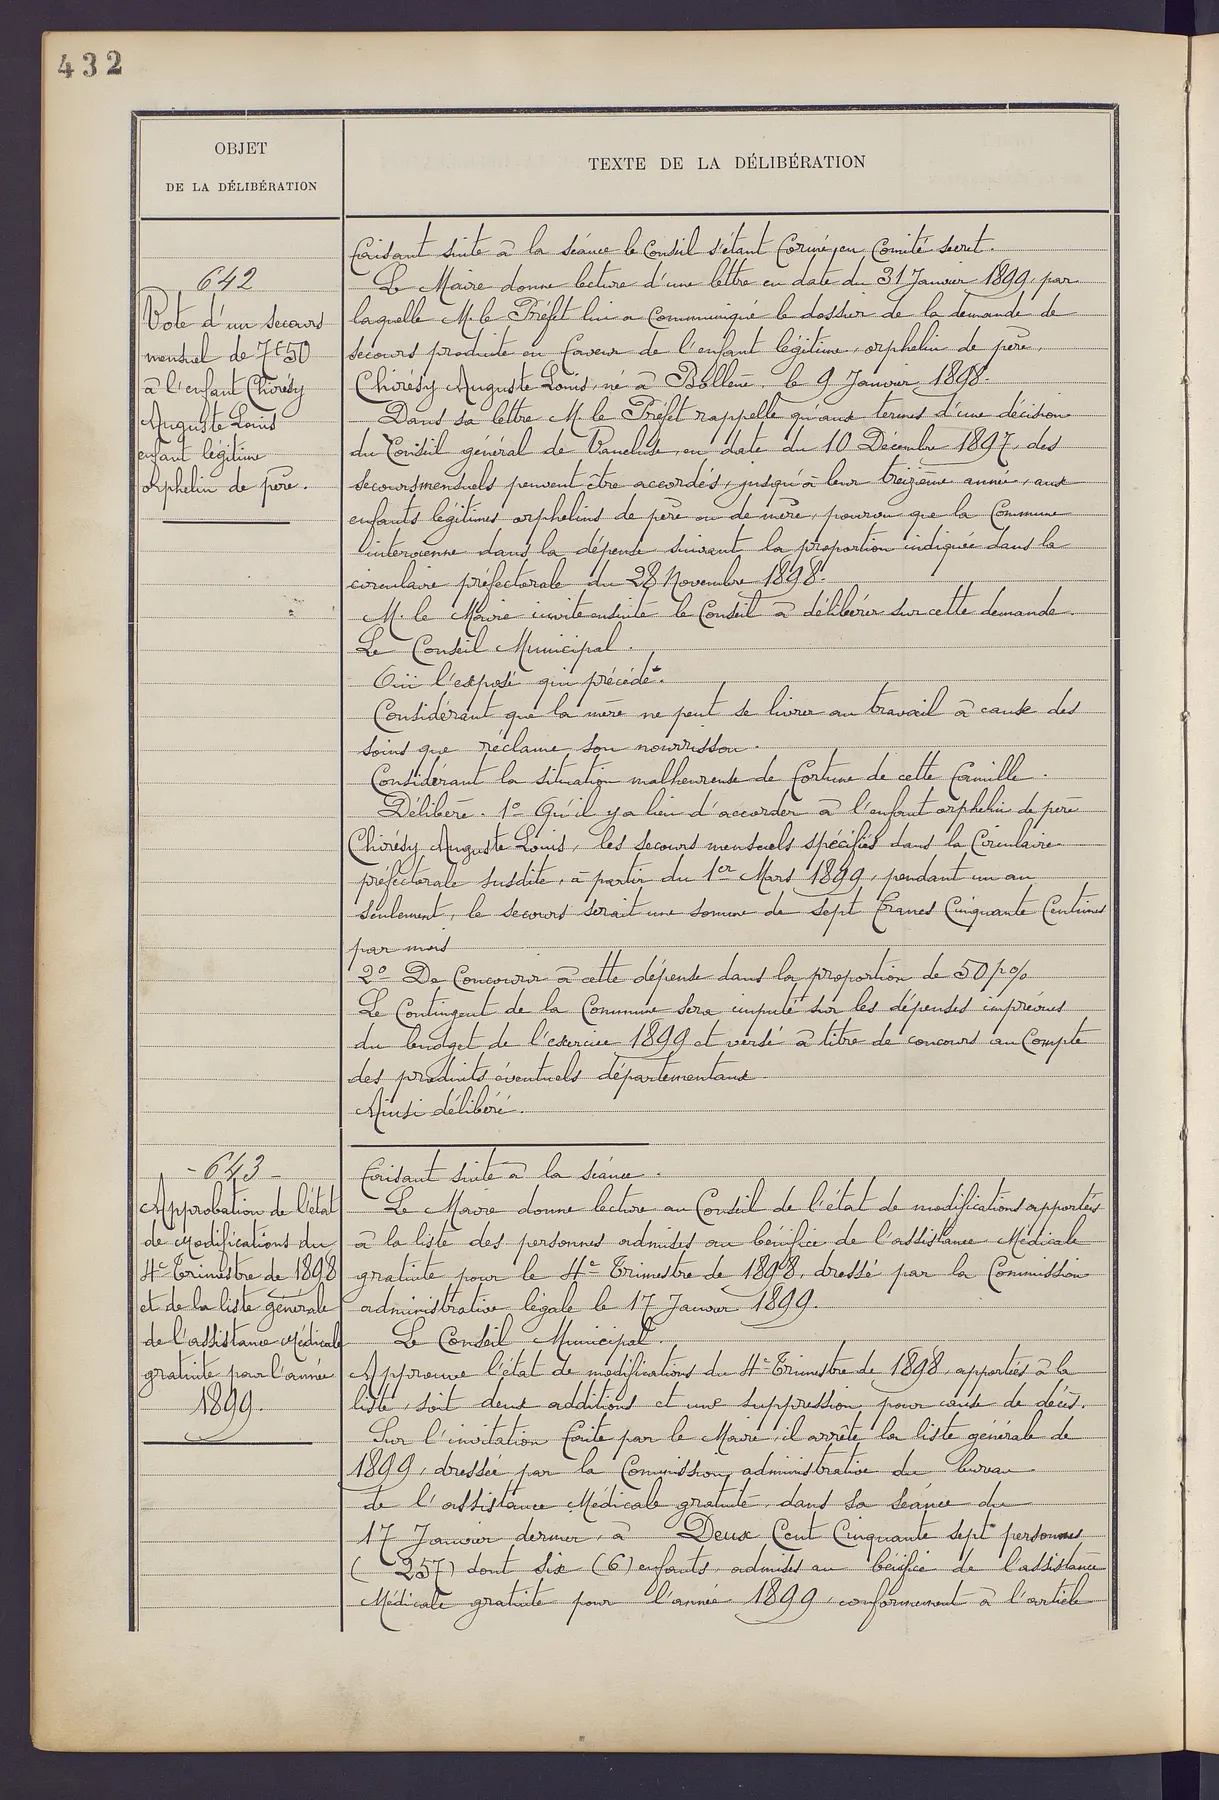 432
OBJET
DE LA DÉLIBÉRATION
TEXTE DE LA DÉLIBÉRATION
642
Vote d'un secours
mensuel de 7f50
à l'enfant Chirésy
Auguste Louis
enfant légitime
orphelin de père.
Faisant suite à la séance le Conseil s'étant formé en Comité secret.
Le Maire donne lecture d'une lettre en date du 31 Janvier 1899, par
laquelle M. le Préfet lui a communiqué le dossier de la demande de
secours produite en faveur de l'enfant légitime, orphelin de père,
Chirésy Auguste Louis, né à Bollène, le 9 Janvier 1898.
Dans sa lettre M. le Préfet rappelle qu'aux termes d'une décision
du Conseil général de Vaucluse, en date du 10 Décembre 1897, des
secours mensuels peuvent être accordés, jusqu'à leur treizième année, aux
enfants légitimes orphelins de père ou de mère, pourvu que la Commune
intervienne dans la dépense suivant la proportion indiquée dans la
circulaire préfectorale du 28 Novembre 1898.
M. le Maire invite ensuite le Conseil à délibérer sur cette demande.
Le Conseil Municipal.
Ouï l'exposé qui précède.
Considérant que la mère ne peut se livrer au travail à cause des
soins que réclame son nourrisson.
Considérant la situation malheureuse de fortune de cette famille.
Délibère. 1° Qu'il y a lieu d'accorder à l'enfant orphelin de père
Chirésy Auguste Louis, les secours mensuels spécifiés dans la Circulaire
préfectorale susdite, à partir du 1er Mars 1899, pendant un an
seulement, le secours serait une somme de sept francs Cinquante Centimes
par mois
2° De Concourir à cette dépense dans la proportion de 50 p%
Le Contingent de la Commune sera imputé sur les dépenses imprévues
du budget de l'exercice 1899 et versé à titre de concours au Compte
des produits éventuels départementaux.
Ainsi délibéré.
- 643 -
Approbation de l'état
de modifications du
4e Trimestre de 1898
et de la liste générale
de l'assistance Médicale
gratuite pour l'année
1899.
Faisant suite à la séance.
Le Maire donne lecture au Conseil de l'état de modifications apportées
à la liste des personnes admises au bénéfice de l'assistance Médicale
gratuite pour le 4e Trimestre de 1898, dressé par la Commission
administrative légale le 17 Janvier 1899.
Le Conseil Municipal.
Approuve l'état de modifications du 4e Trimestre de 1898, apportées à la
liste, soit deux additions et une suppression pour cause de décès.
Sur l'invitation faite par le Maire, il arrête la liste générale de
1899, dressée par la Commission administrative du bureau
de l'assistance Médicale gratuite, dans sa séance du
17 Janvier dernier, à Deux Cent Cinquante sept personnes
( 257) dont six (6) enfants, admises au bénéfice de l'assistance
Médicale gratuite pour l'année 1899, conformément à l'article